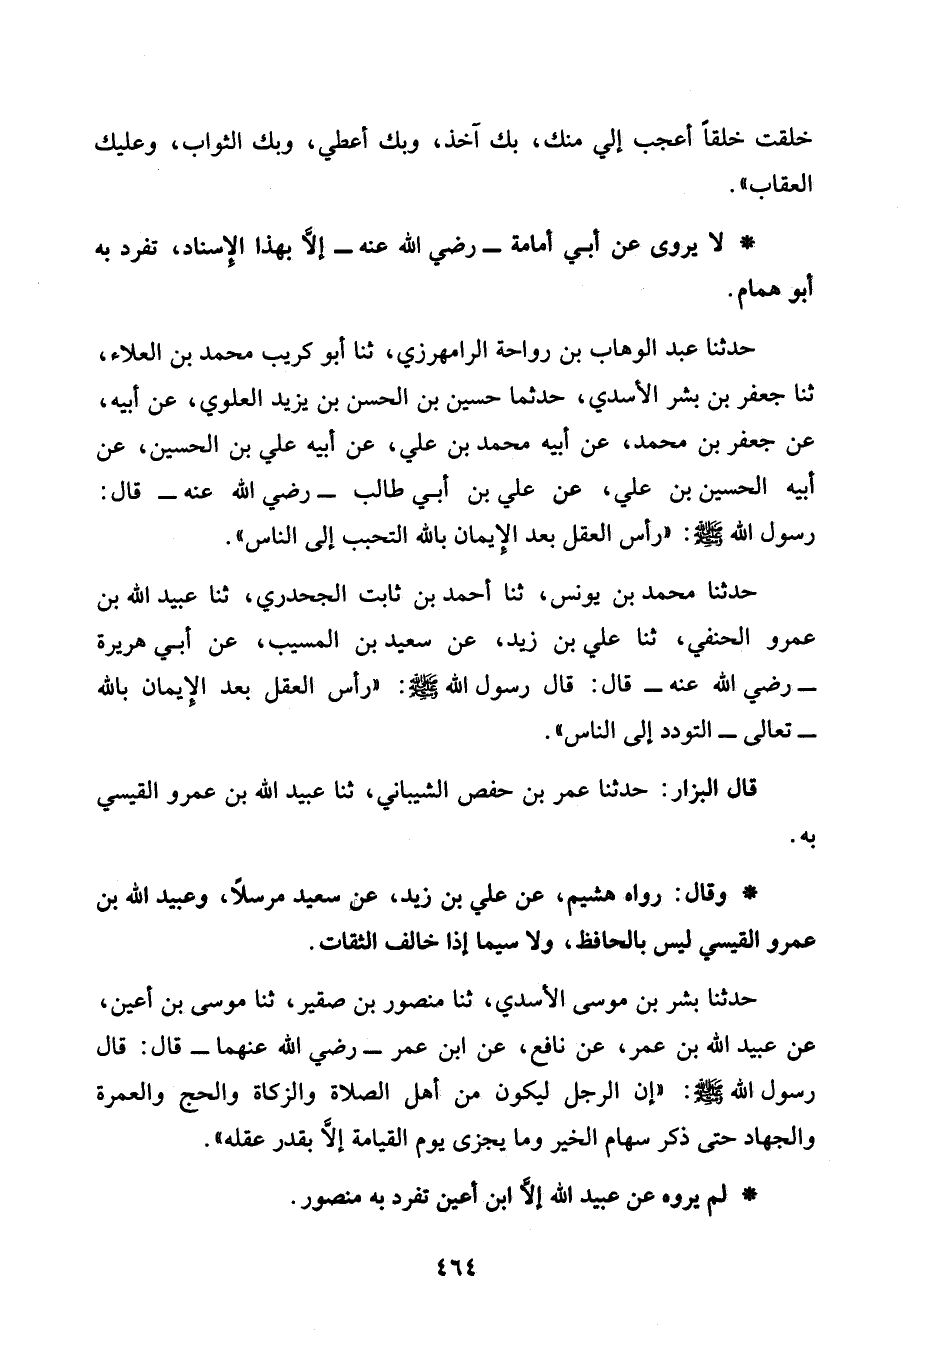 خلقت خلقاً أعجب إلي منك، بك آخذ، وبك أعطي، وبك الثواب، وعليك
العقاب».
* لا يروى عن أبـي أمامة ــ رضي الله عنه ــ إلاَّ بهذا الإِسناد، تفرد به
أبو همام.
حدثنا عبد الوهاب بن رواحة الرامهرزي، ثنا أبو كريب محمد بن العلاء،
ثنا جعفر بن بشر الأسدي، حدثما حسين بن الحسن بن يزيد العلوي، عن أبيه،
عن جعفر بن محمد، عن أبيه محمد بن علي، عن أبيه علي بن الحسين، عن
أبيه الحسين بن علي، عن علي بن أبـي طالب ــ رضي الله عنه ــ قال:
رسول الله ﷺ: «رأس العقل بعد الإِيمان بالله التحبب إلى الناس».
حدثنا محمد بن يونس، ثنا أحمد بن ثابت الجحدري، ثنا عبيد الله بن
عمرو الحنفي، ثنا علي بن زيد، عن سعيد بن المسيب، عن أبـي هريرة
ــ رضي الله عنه ــ قال: قال رسول الله ﷺ: «رأس العقل بعد الإِيمان بالله
ــ تعالى ــ التودد إلى الناس».
قال البزار: حدثنا عمر بن حفص الشيباني، ثنا عبيد الله بن عمرو القيسي
به.
* وقال: رواه هشيم، عن علي بن زيد، عن سعيد مرسلاً، وعبيد الله بن
عمرو القيسي ليس بالحافظ، ولا سيما إذا خالف الثقات.
حدثنا بشر بن موسى الأسدي، ثنا منصور بن صقير، ثنا موسى بن أعين،
عن عبيد الله بن عمر، عن نافع، عن ابن عمر ــ رضي الله عنهما ــ قال: قال
رسول الله ﷺ: «إن الرجل ليكون من أهل الصلاة والزكاة والحج والعمرة
والجهاد حتى ذكر سهام الخير وما يجزى يوم القيامة إلاَّ بقدر عقله».
* لم يروه عن عبيد الله إلاَّ ابن أعين تفرد به منصور.
٤٦٤